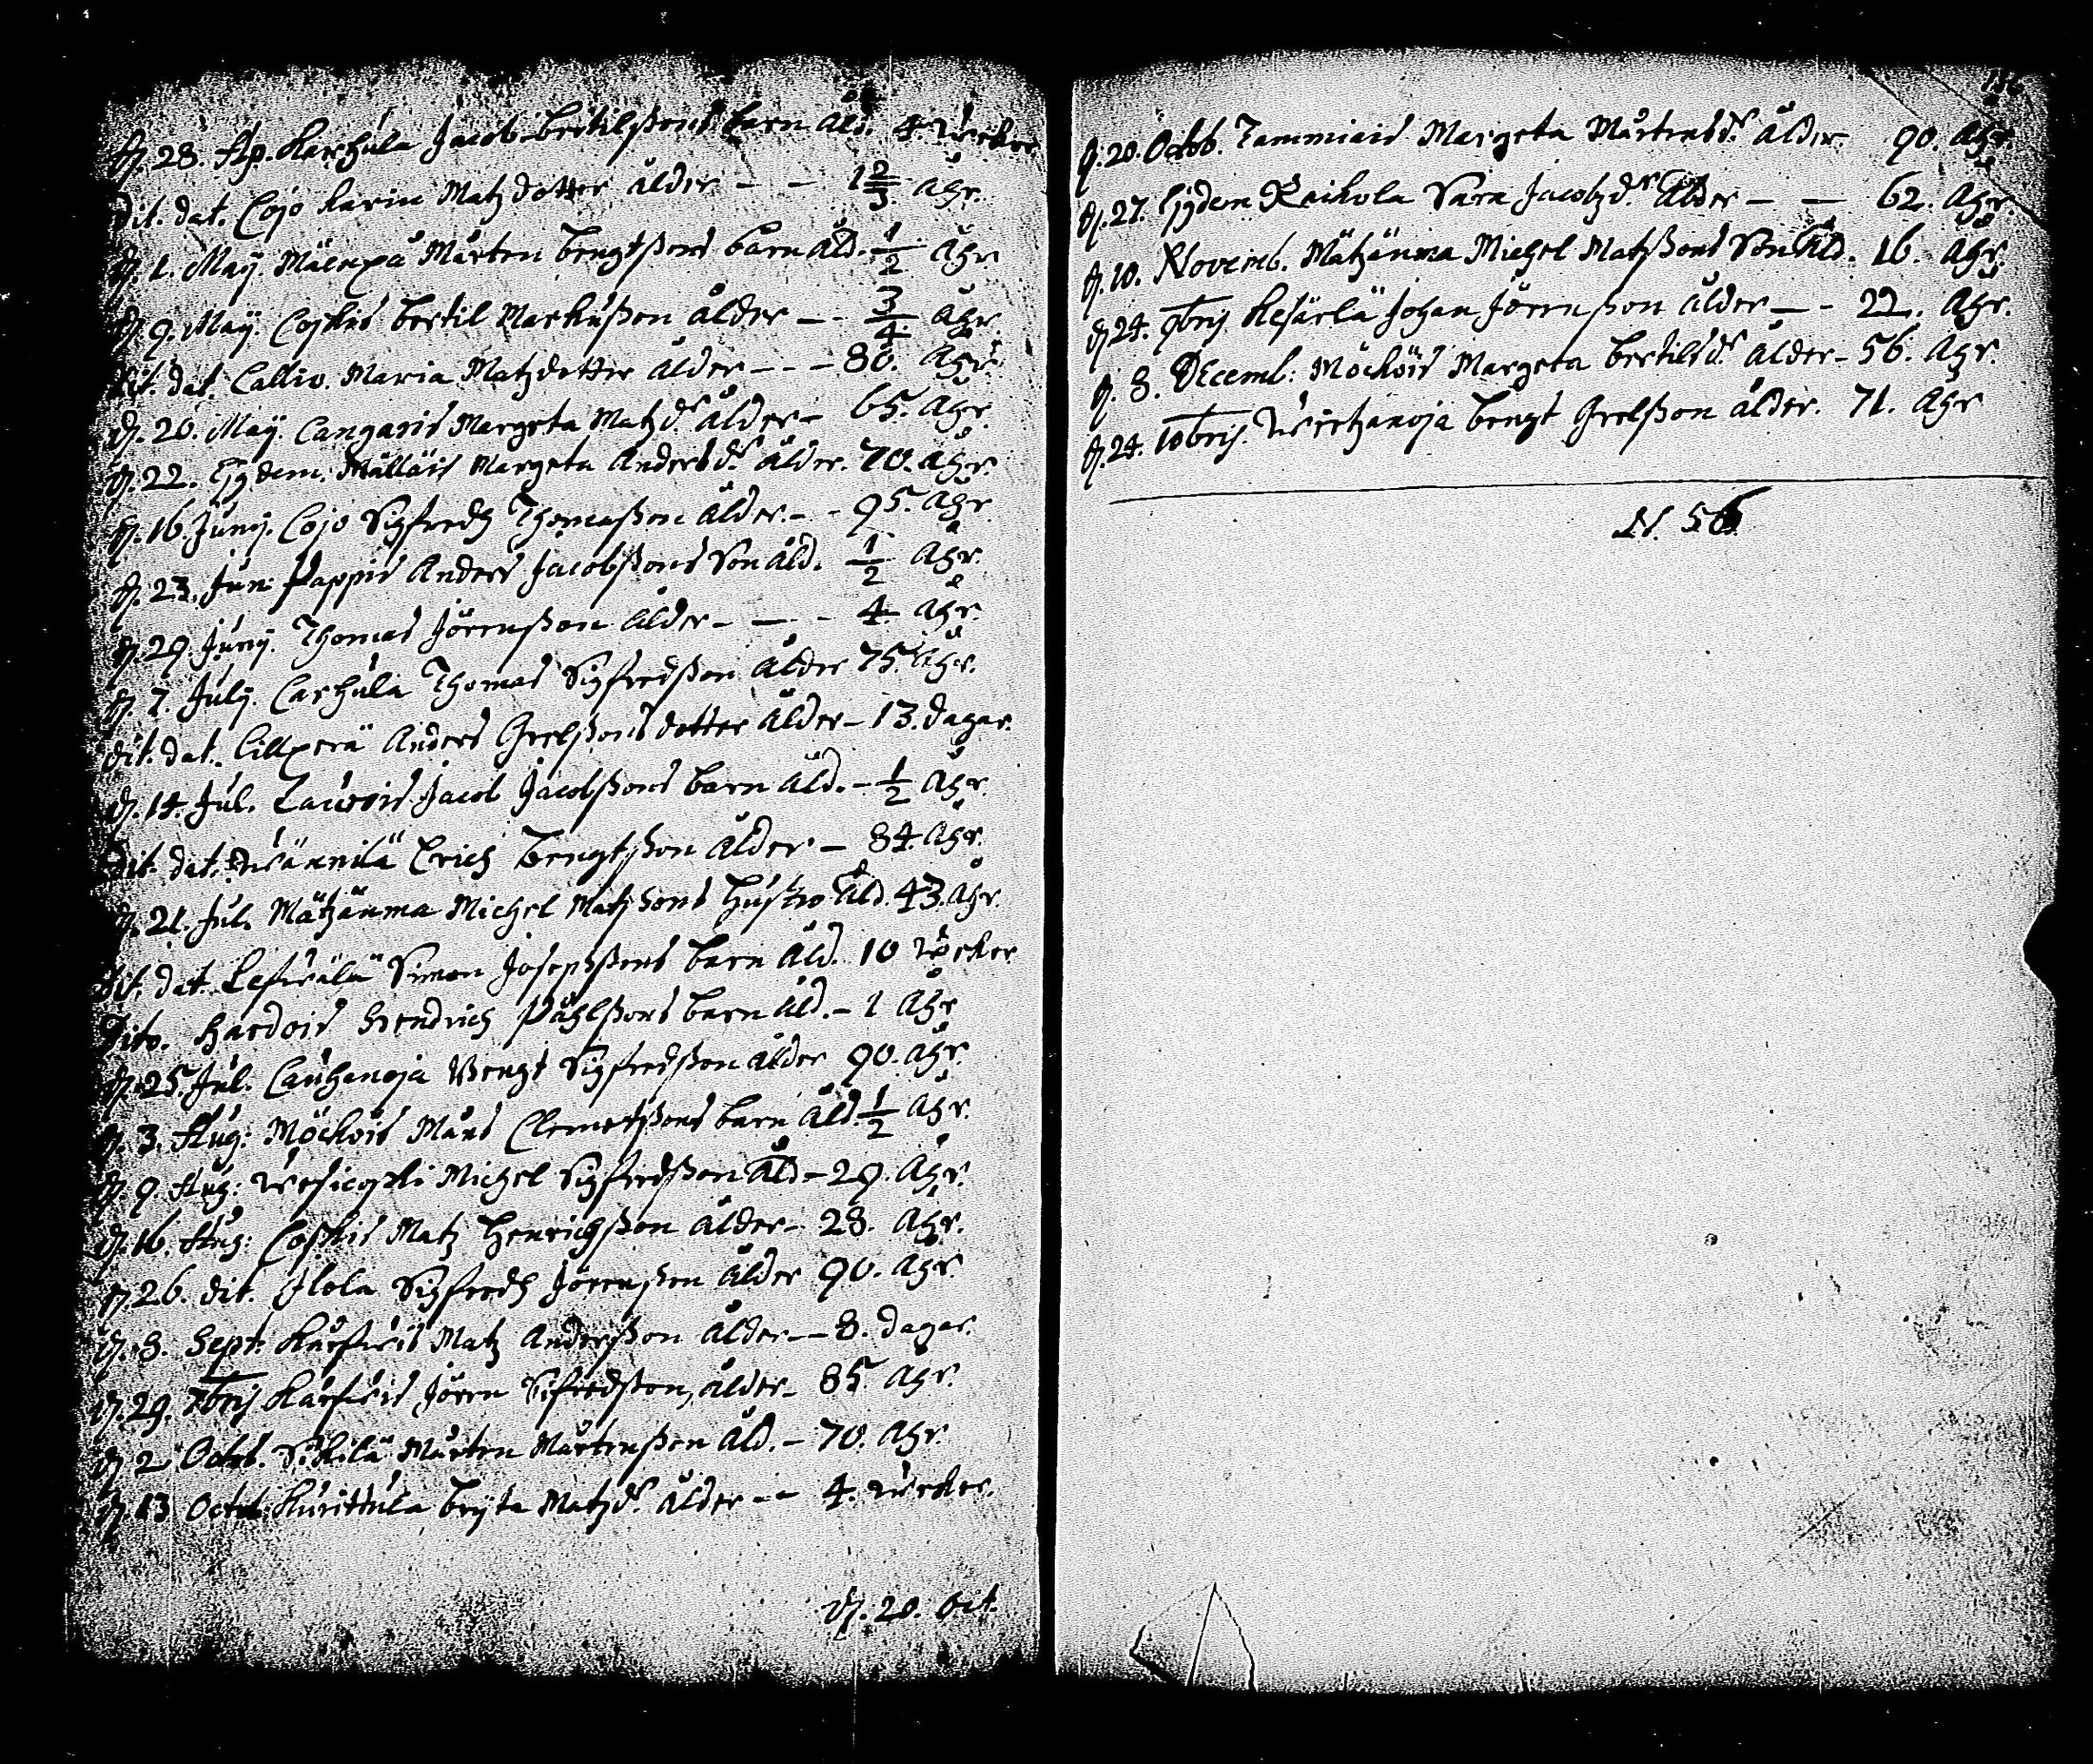 D. 28. Ap. Karhula Jacob Bertilßons barn åld. 4 wekor
Dit. dat. Cojo Karin Matzdotter ålder - - 1 2/3 åhr.
D. 1. Maij. Mäenpä Mårten Bengtßons barn åld. 1/2 åhr
D. 9. Maij. Coskis Bertil Markußon ålder - - 3/4 åhr.
Dit. dat. Callio Maria Matzdotter ålder - - - 80. åhr.
D. 20. Maij. Cangaris Margeta Matzdr. ålder - 65. åhr.
D. 22. Ejusdem. Mälläis Margeta Andersdr. ålder. 70. åhr.
D. 16. Junij. Cojo Sigfredh Thomaßon ålder. - - 95. åhr
D. 23. Jun: Pappis Anders Jacobßons Son åld. 1/2 åhr.
D. 29. Junij. Thomas Jörenßon ålder - - - 4. åhr.
D. 7. Julij. Carhula Thomas Sigfredßon ålder 75. åhr.
Dit. dat. Cillperä Anders Grelßons dotter ålder - 13. dagar.
D. 14. Jul. Laurois Jacob Jacobßons barn åld. - 1/2 åhr.
Dit. dat. Wännilä Erich Bengtßon ålder - 84. åhr.
D. 21. Jul. Mätzänma Michel Matzsons Hustro åld. 43. åhr.
Dit. dat. Simon Josephßons barn åld. 10 wekor
Dito. Hardois Hendrich Påhlßons barn åld. - 1 åhr
D. 25. Jul. Cauhanoja Bengt Sigfredßon ålder 90. åhr.
D. 3. Aug: Möcköis Måns Clemetßons barn åld. 1/2 åhr.
D. 9. Aug: Michel Sigfredßon åld - 29. åhr.
D. 16. Aug: Coskis Matz Henrichßon ålder - 28. åhr.
D. 26. dit. Ilola Sigfredh Jörenßon ålder 90. åhr.
D. 8. Sept: Matz Anderßon ålder - - 8. dagar.
D. 29. 7bris Jören Sifredßon, ålder - 85. åhr.
D. 2 Octob. Sikilä Mårten Mårtenßon åld. - 70. åhr.
D. 13 Octob: Kurittula Bryta Matzdr. ålder - - 4. wekor.
D. 20. Oct.
186
D. 20. Octob. Tammiais Margeta Mårtensdr. ålder. 90. åhr.
D. 27. Ejusdem Raikola Sara Jacobzdr. ålder - - 62. åhr.
D. 10. Novemb. Mätzänma Michel Matßons Son åld. 16. åhr.
D. 24. 9bris Kesärlä Johan Jörenßon ålder - - 22. åhr.
D. 8. Decemb: Möcköis Margeta Bertilsdr. ålder - 56. åhr.
D. 24. 10bris. Wirtzanoja Bengt Grelßon ålder. 71. åhr
N. 56.